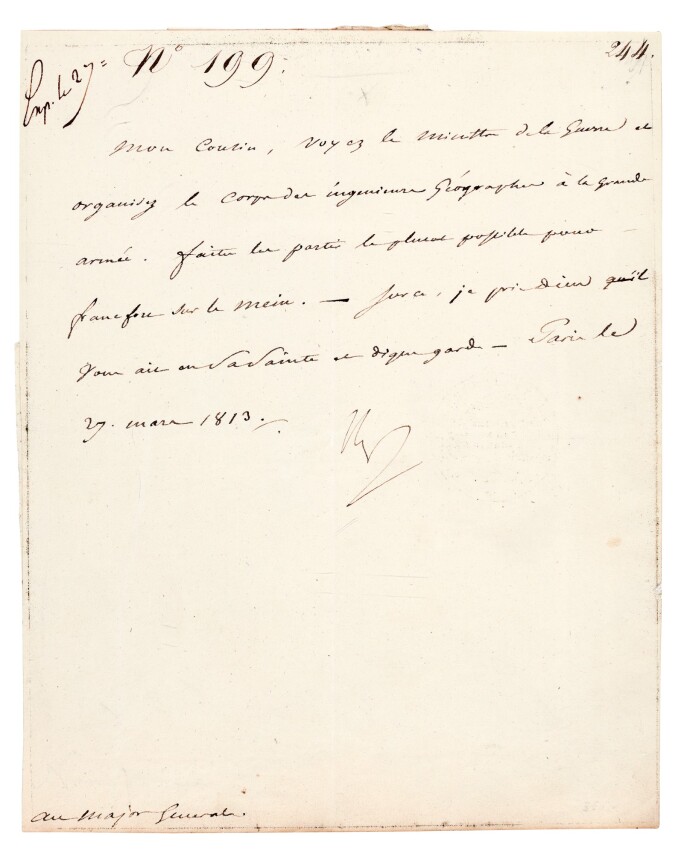 Exp. le 27=
N° 199.
244.
Mon Cousin, Voyez le Ministre de la Guerre et
organisez le Corps des ingenieurs Géographes à la Grande
armée. faites les partir le plutot possible pour
francfort sur le Mein. — sur ce, je prie Dieu qu'il
Vous ait en Sa Sainte et digne garde — Paris le
27. mars 1813.
au Major General.